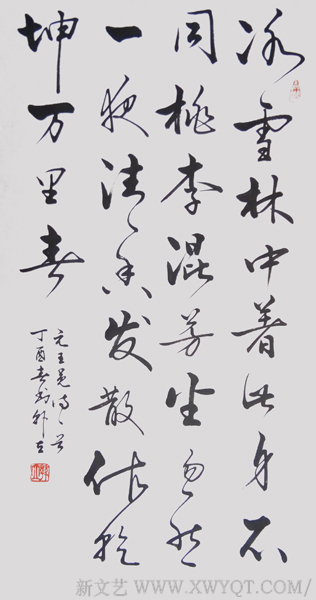 冰雪林中著此身不
同桃李混芳尘忽然
一夜清香发散作乾
坤万里春
元王冕诗一首
丁酉春
新文艺 WWW.XWYQT.COM